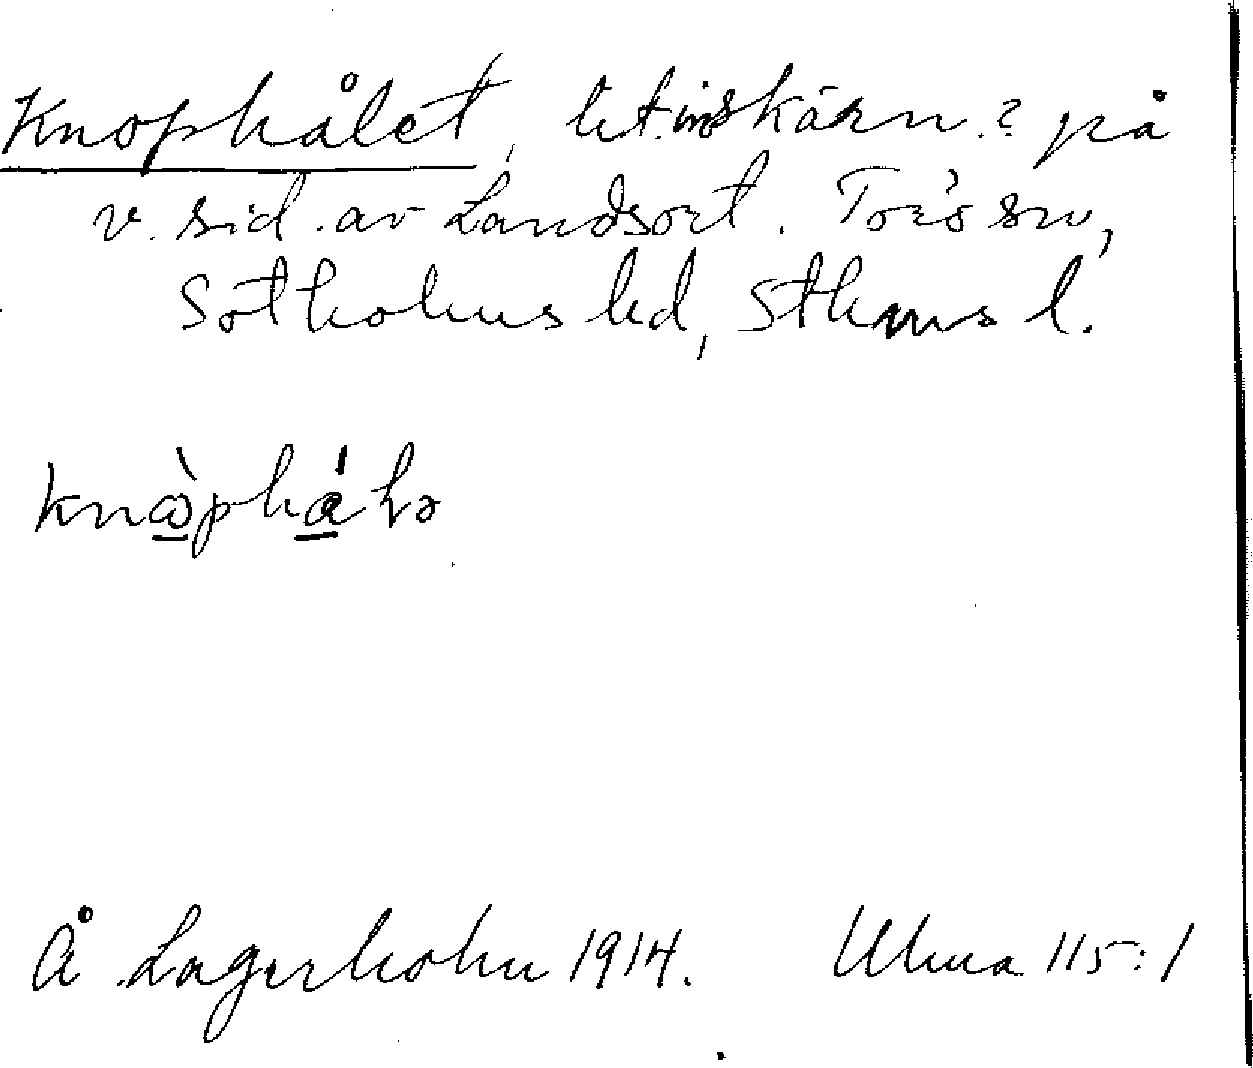 Knophålet, lit. inskärn.? på
v. sid. av Landsort. Torö sn,
Sotholms hd, Sthms l.
Å. Lagerholm 1914. Ulma 115:1